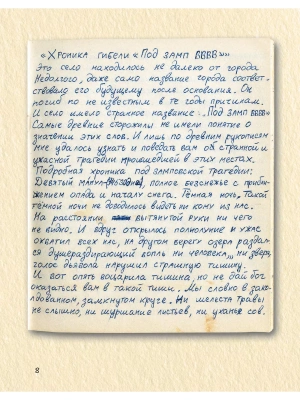 «ХРОНИКА ГИБЕЛИ «ПОД ЗАМП ВВВВ»»
Это село находилось не далеко от города
Недолгого, даже само название города соответ-
ствовало его будущему после основания. Он
погиб по не известным в те годы причинам.
И село имело странное название: "Под ЗАМП ВВВВ"
Самые древние старожилы не имели понятие о
значении этих слов. И лишь по древним рукописям
мне удалось узнать и поведать вам о странной и
ужасной трагедии произшедшей в этих местах.
Подробная хроника под замповской трагедии:
Девятый полное безснежье с прибли-
жением опада и началу снега. Тёмная ночь, такой
тёмной ночи не доводилось видеть ни кому из нас.
На расстоянии вытянутой руки ни чего
не видно. И вдруг открылось полнолуние и ужас
охватил всех нас, на другом берегу озера раздал-
ся душераздирающий вопль ни человека, ни зверя,
голос дьявола нарушил страшную тишину.
И вот опять воцарила тишина, но не дай бог
оказаться вам в такой тиши. Мы словно в зако-
лдованном, замкнутом круге. Ни шелеста травы
не слышно, ни шуршание листьев, ни уханье сов.
8